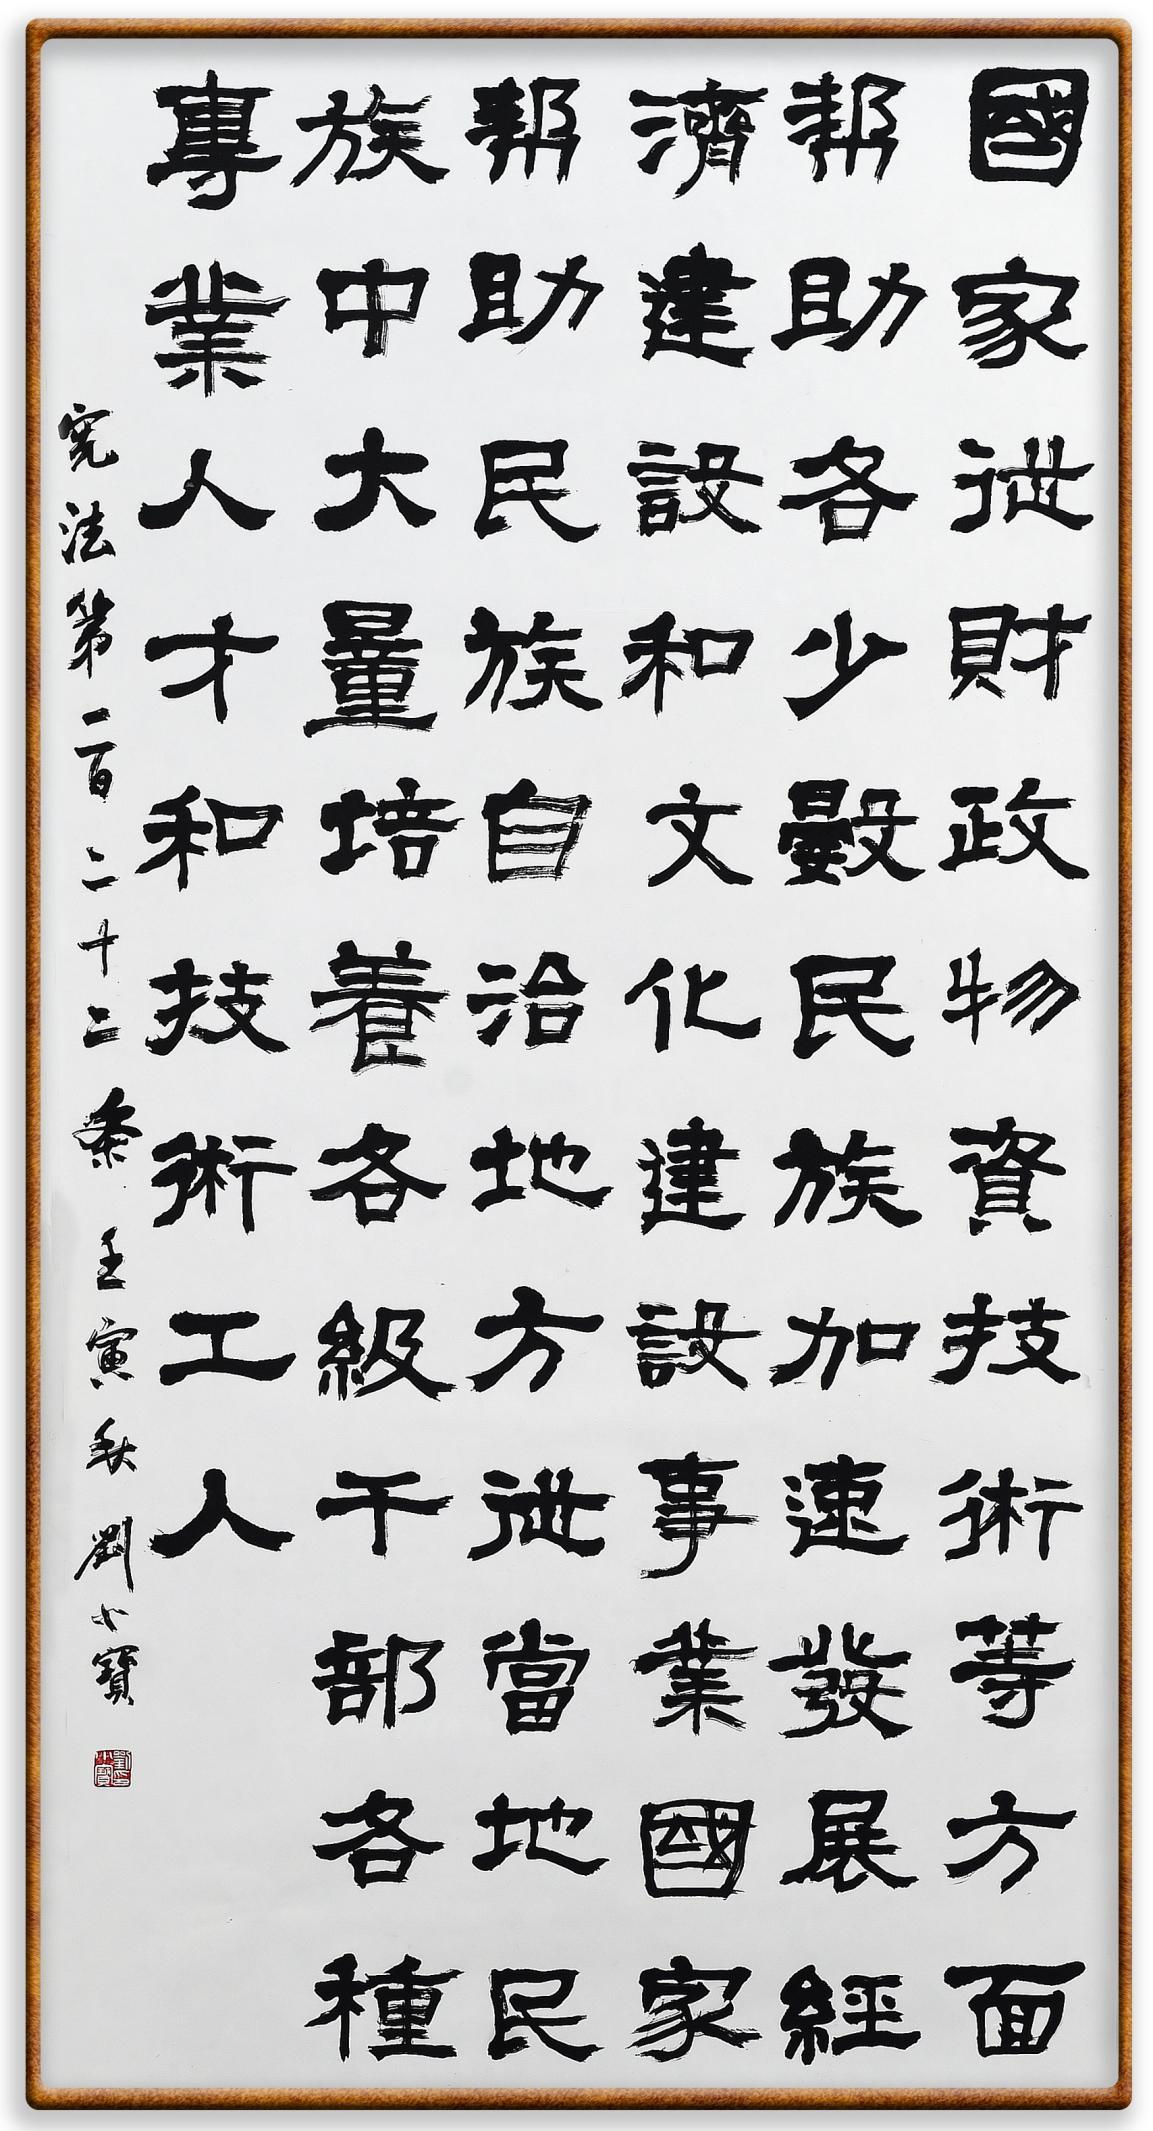 國家從財政物資技術等方面
帮助各少數民族加速發展經
濟建設和文化建設事業國家
帮助民族自治地方從當地民
族中大量培養各級干部各種
專業人才和技術工人
憲法第一百二十二条 壬寅秋 劉小寶
劉小寶